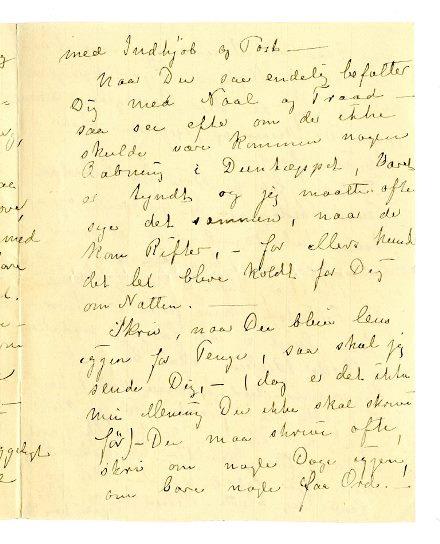 med Indkjøb og Post —
Naar Du saa endelig befatter
Dig med Naal og Traad —
saa se efte om der ikke
skulde være kommen nogen
Aabning i Duntæppet, Varet
er tyndt og jeg maatte ofte
sye det sammen, naar de
kom Rifter, – for ellers kund
det let bleve koldt for Dig
om Natten. —
Skriv, naar Du bleiv lens
iggen for Penge, saa skal jeg
sende Dig, – (dog er det ikke
min Mening Du ikke skal skrive
før) – Du maa skrive ofte,
skriv om nogle Dage iggen,
om bare nogle faa Ord. –
med